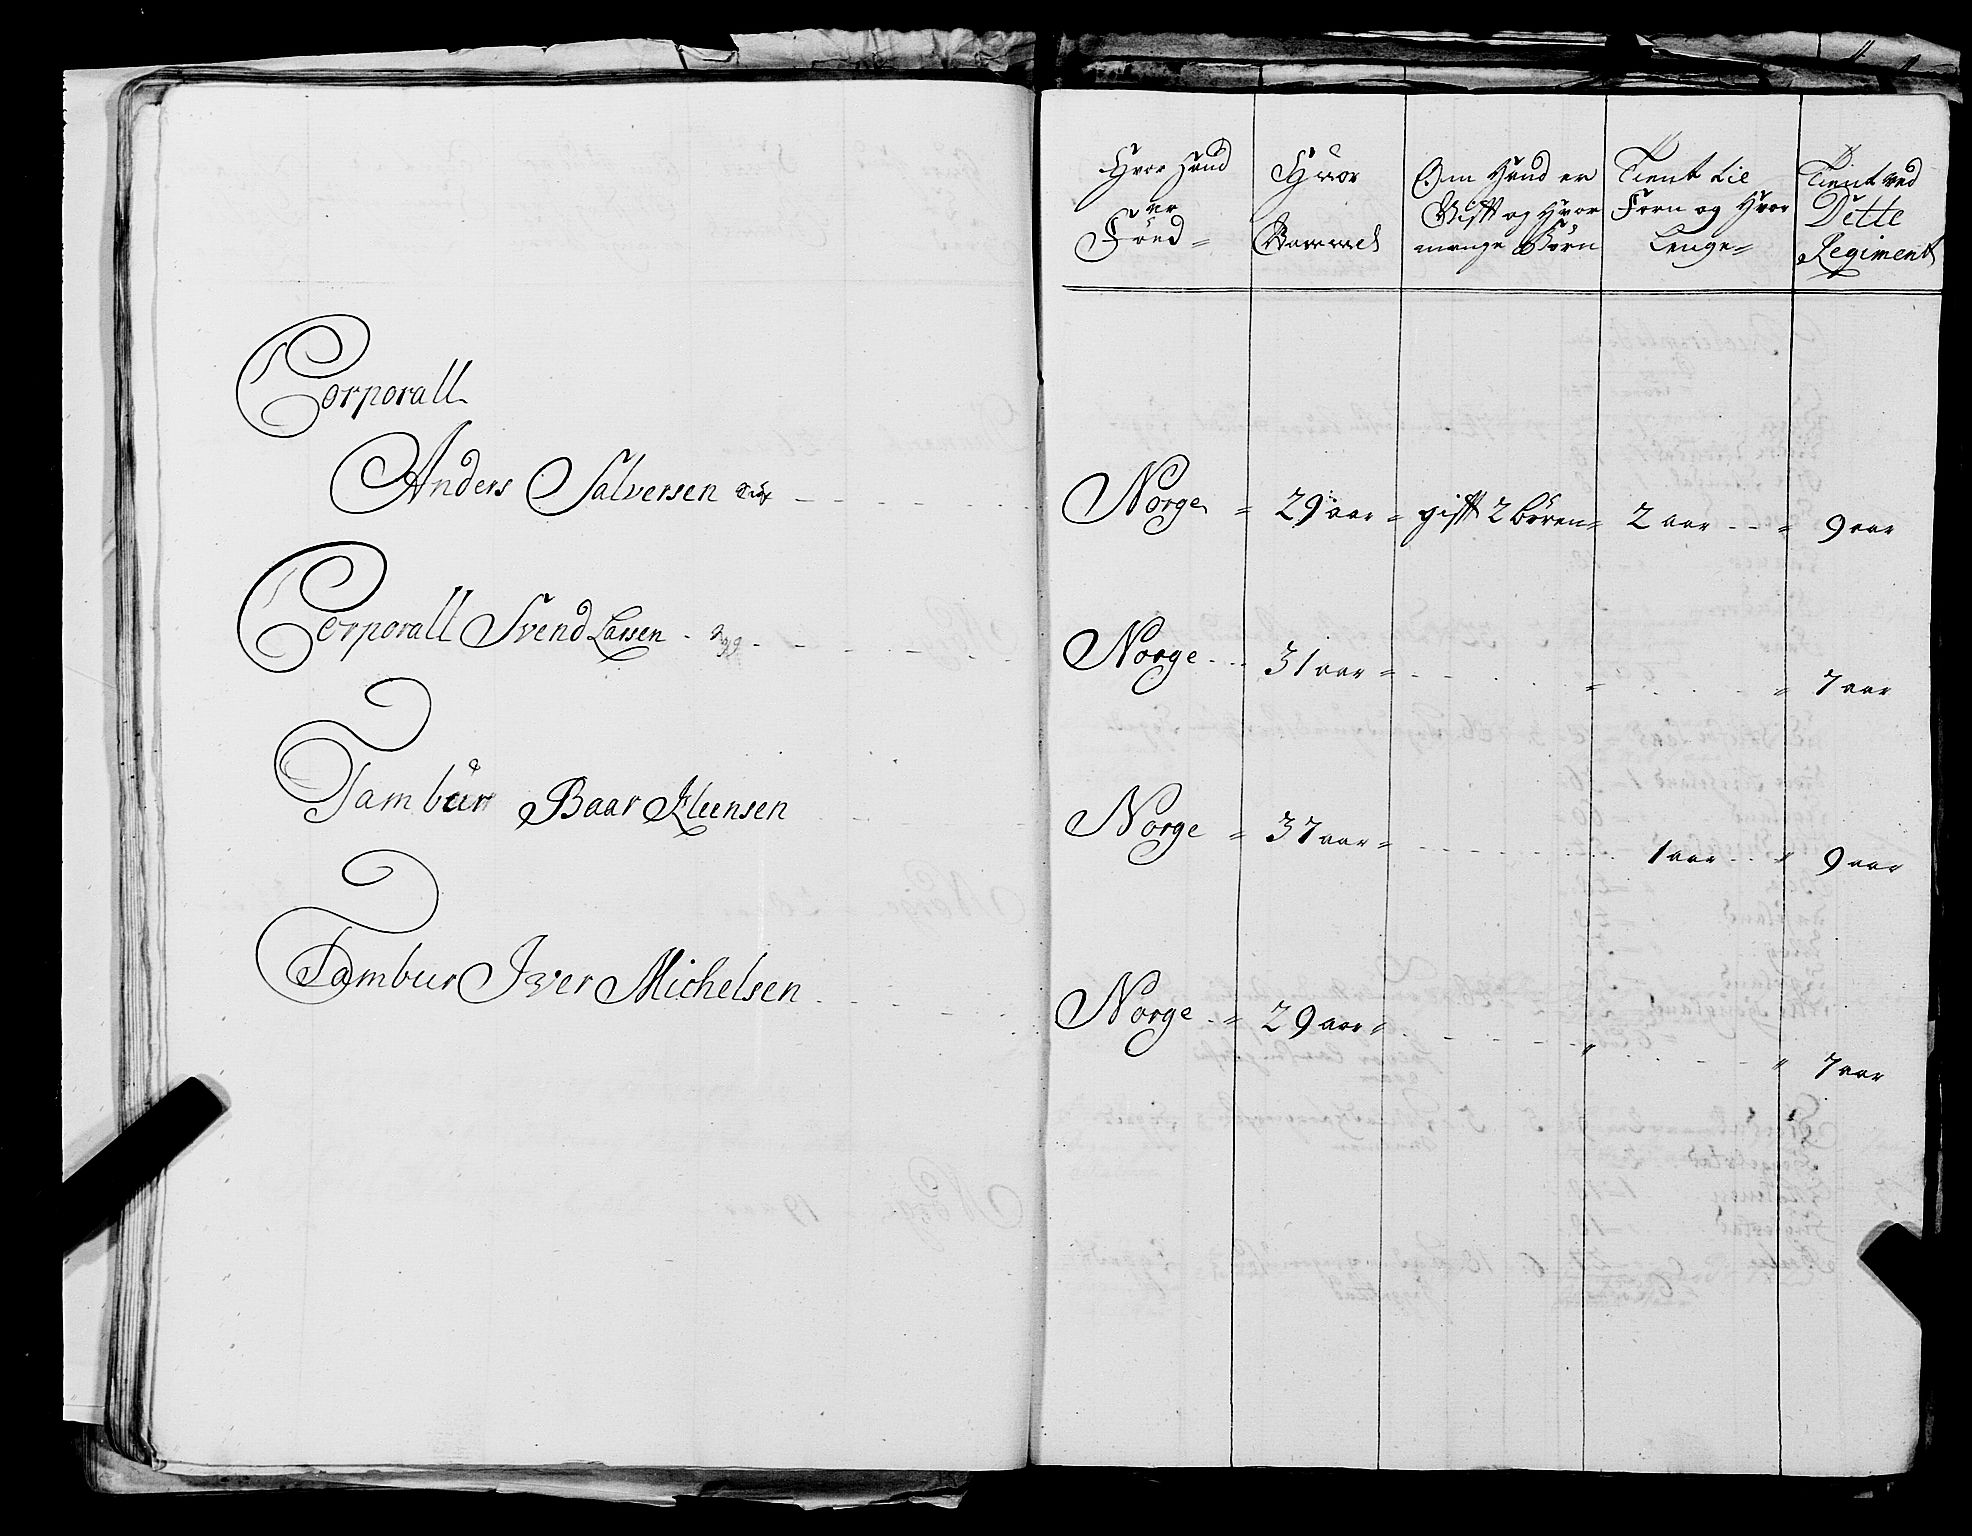 Corporall
Anders Salversen
Corporall Svend Larsen
Tambur Baar Eleensen
Tambur Iver Michelsen
Hvor Hand
er
Föed
Hvor
Gammel
Om Hand er
Gifft og Hvor
mange Börn
Tient til
Forn og Hvor
Lenge
Tient ved
Dette
Regiment
Norge = 29 aar = gifft 2 Bören = 2 aar - - = 9 aar
Norge - - - 31 aar = 7 aar
Norge = 37 aar = 1 aar 9 aar
Norge - = 29 aar = 7 aar